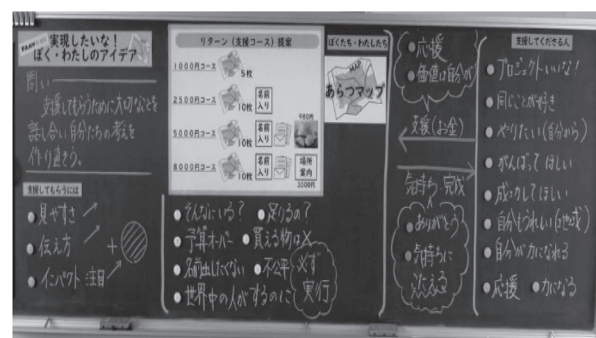 実現したいな！
ぼく・わたしのアイデア
問い
支援してもらうために大切なことを
話し合い自分たちの考えを
作り直そう。
支援してもらうには
見やすさ
伝え方
インパクト 注目
＋
リターン（支援コース）提案
1000円コース 5枚
2500円コース 10枚 名前入り
5000円コース 10枚 名前入り
8000円コース 10枚 名前入り 場所案内
3000円
そんなにいる？ 足りるの？
予算オーバー 買える物は×
名前出したくない 不公平
世界中の人がするのに
必ず
実行
ぼくたち・わたしたち
MAP
あらつマップ
応援
価値は自分が
支援（お金）
気持ち・完成
ありがとう
気持ちに
支援してくださる人
プロジェクトいいな！
同じことが好き
やりたい（自分から）
がんばってほしい
成功してほしい
自分が力になれる
応援 力になる